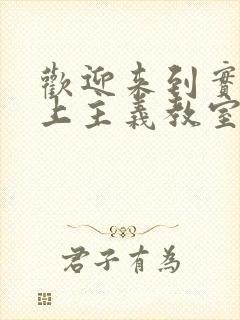 歡迎來到實
上主義教室
君子有為